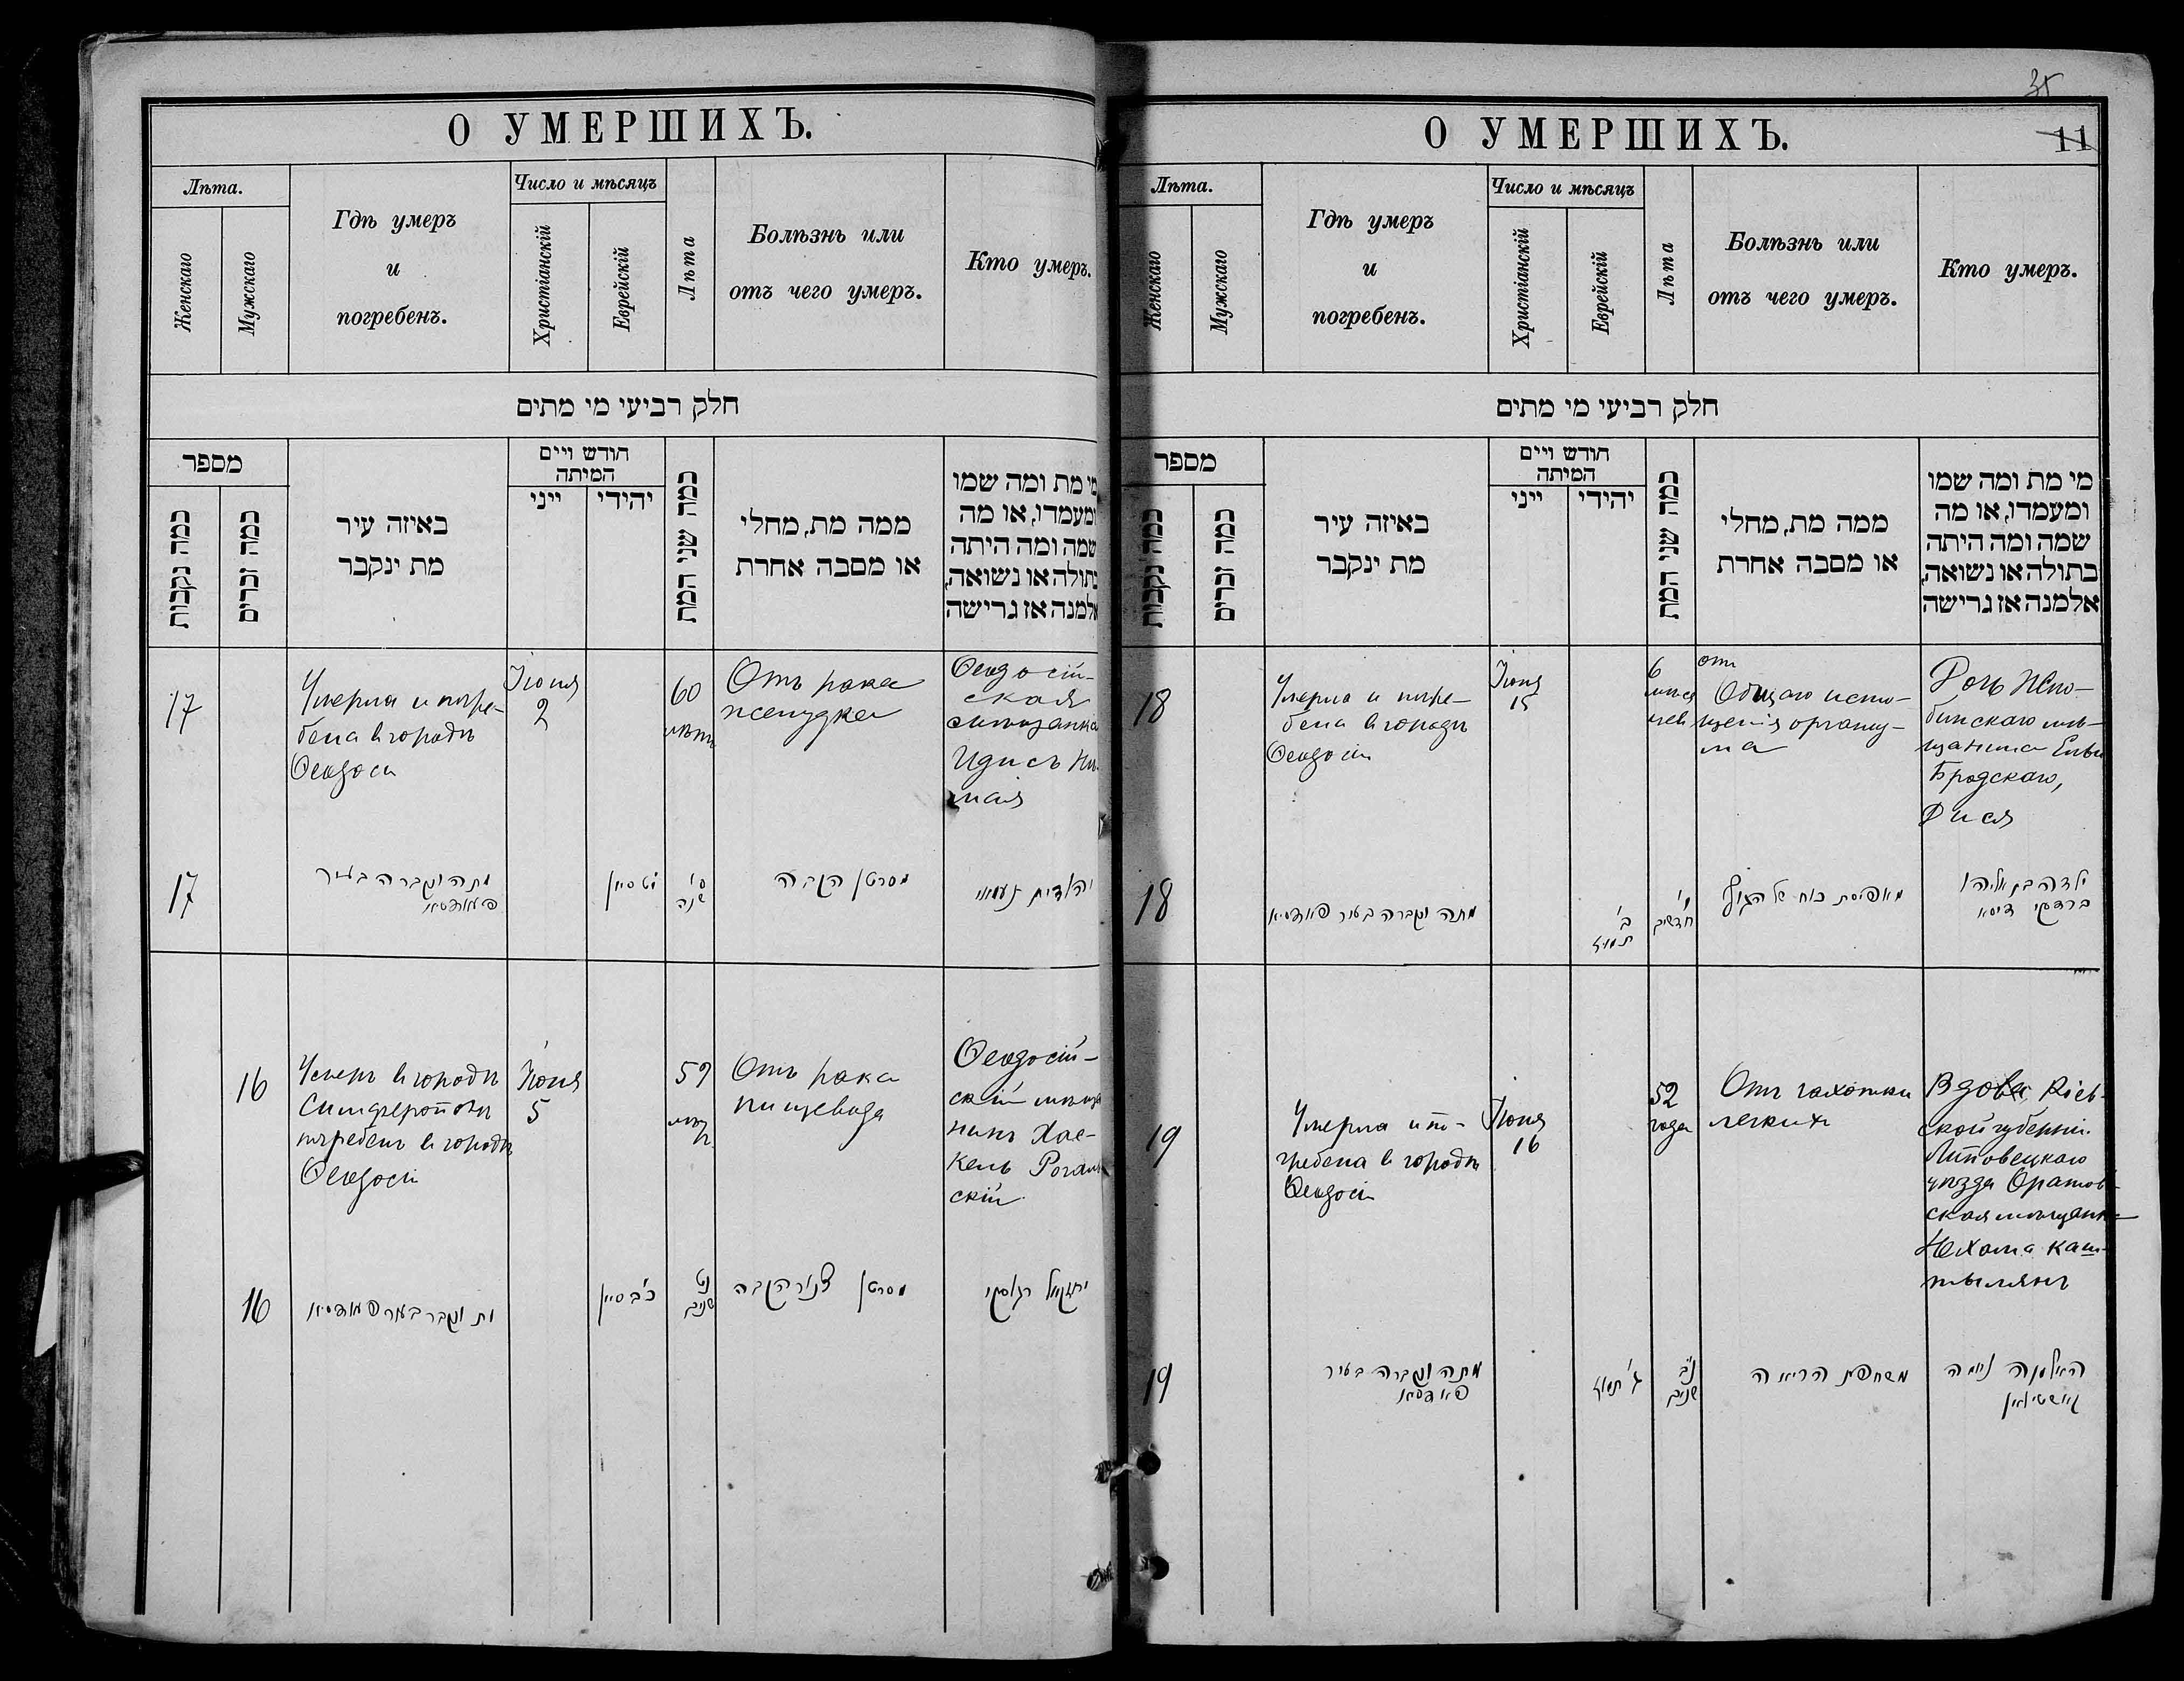 О УМЕРШИХЪ.
Лѣта.
Женскаго
Мужскаго
Гдѣ умеръ
и
погребенъ.
Число и мѣсяцъ
Христіанскій
Еврейскій
Лѣта
Болѣзнь или
отъ чего умеръ.
Кто умеръ.
חלק רביעי מי מתים
מספר
כמה נקבות
כמה זכרים
באיזה עיר
מת ינקבר
חודש ויים
המיתה
ייני
יהידי
כמה שני המת
ממה מת, מחלי
או מסבה אחרת
מי מת ומה שמו
ומעמדו, או מה
שמה ומה היתה
בתולה או נשואה,
אלמנה אז גרישה
17
Умерла и погре-
бена въ городѣ
Ѳеодосіи
Іюня
2
60
лѣтъ
Отъ рака
желудка
Ѳеодосій-
ская
мѣщанка
Идисъ
17
מתה ונקברה בעיר
פעאדסיא
סיון
ס'
שנה
מסרטן הקבה
יהודית
16
Умеръ въ городѣ
Симферополѣ
погребенъ въ городѣ
Ѳеодосіи
Іюня
5
59
лѣтъ
Отъ рака
пищевода
Ѳеодосій-
скій мѣща
нинъ Хас-
кель
скій
16
מת ונקבר בעיר פעאדסיא
כ"ב סיון
נט
שנים
מסרטן צנור הקבה
יחזקאל
35
О УМЕРШИХЪ.
11
Лѣта.
Женскаго
Мужскаго
Гдѣ умеръ
и
погребенъ.
Число и мѣсяцъ
Христіанскій
Еврейскій
Лѣта
Болѣзнь или
отъ чего умеръ.
Кто умеръ.
חלק רביעי מי מתים
מספר
כמה נקבות
כמה זכרים
באיזה עיר
מת ינקבר
חודש ויים
המיתה
ייני
יהידי
כמה שני המת
ממה מת, מחלי
או מסבה אחרת
מי מת ומה שמו
ומעמדו, או מה
שמה ומה היתה
בתולה או נשואה,
אלמנה אז גרישה
18
Умерла и погре-
бена въ городѣ
Ѳеодосіи
Іюня
15
6
мѣся
цев
отъ
Общаго исто-
щенія организ-
ма
Дочь
бинскаго мѣ-
щанина Ельи
Бродскаго,
Дися
18
מתה ונקברה בעיר פאדסיא
ב'
תמוז
ו'
חדשים
מאפיסת כוח של הגוף
ילדה בת אליהו
ברדסקי דיסא
19
Умерла и по-
гребена въ городѣ
Ѳеодосіи
Іюня
16
52
года
Отъ чахотки
легкихъ
Вдова, Кіев-
ской губерніи
Липовецкаго
уѣзда Оратов-
ская мѣщанка
Нехама Каш-
тылянъ
19
מתה ונקברה בעיר
פאדסיא
ג' תמוז
נ"ב
שנים
משחפת הריאה
האלמנה נחמה
קאשטילאן